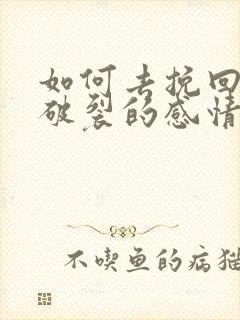 如何去挽回
破裂的感情
不喫鱼的病猫